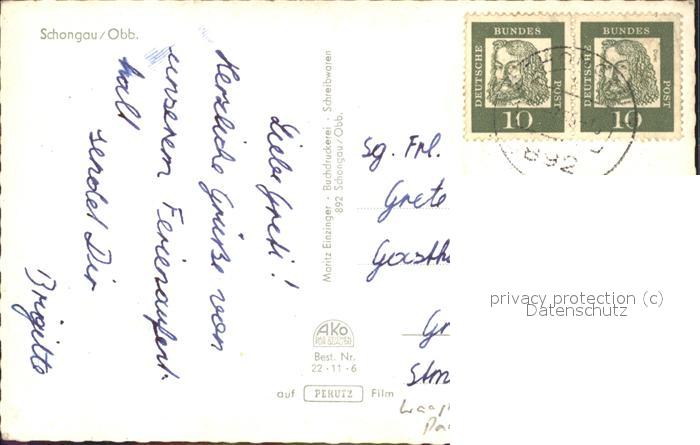 Schongau/Obb.
Liebe Greti!
Herzliche Grüße von
unserem Ferienaufent-
halt
sendet Dir
Brigitte
Moritz Einzinger · Buchdruckerei · Schreibwaren
892 Schongau/Obb.
AKO
Best. Nr.
22 · 11 - 6
auf PERUTZ Film
DEUTSCHE BUNDES POST
10
DEUTSCHE BUNDES POST
10
892
Sg. Frl.
Grete
Gasth
Gr
privacy protection (c)
Datenschutz